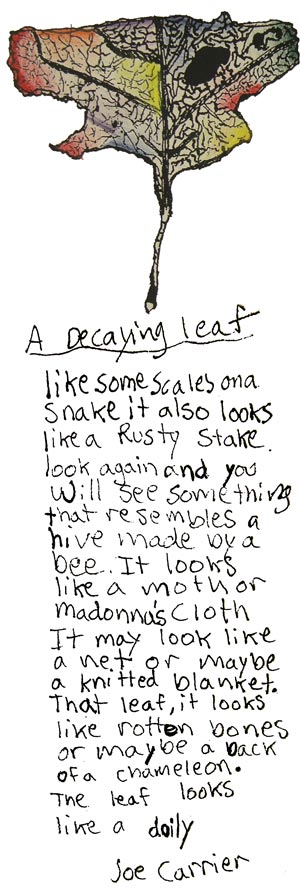 A Decaying leaf
like some scales on a
snake it also looks
like a Rusty stake.
look again and you
will see something
that resembles a
hive made by a
bee. It looks
like a moth or
madonna's cloth
It may look like
a net or maybe
a knitted blanket.
That leaf, it looks
like rotten bones
or maybe a back
of a chameleon.
The leaf looks
like a doily
Joe Carrier